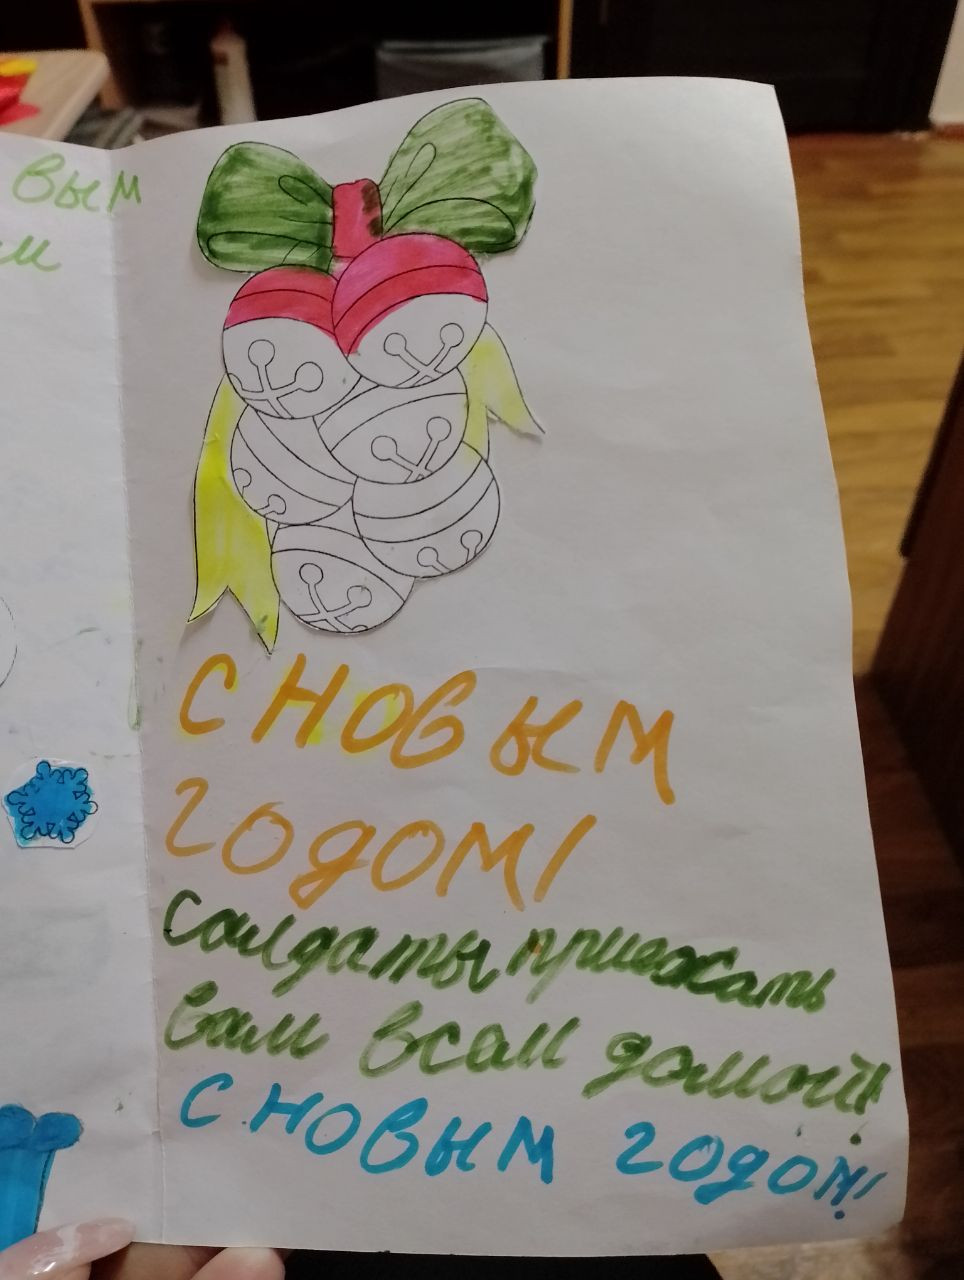 вым
с новым
годом!
Салдаты приежать
вам всем домой!!
с новым годом!